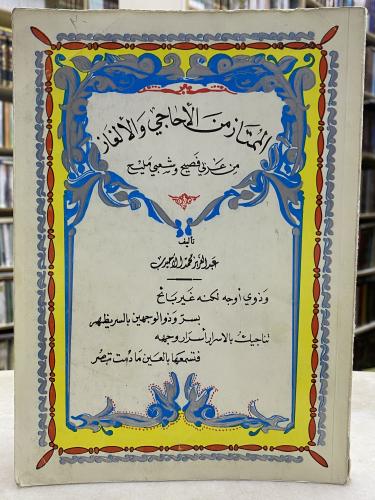 الممتاز من الأحاجي والألغاز
من عربي فصيح وشعبي مليح
تأليف
عبد العزيز محمد الأحيدب
وذوي أوجه لكنه غير بائح
بسر وذو الوجهين بالسر يظهر
تناجيك بالأسرار أسرار وجهه
فتسمعها بالعين ما دمت تبصر